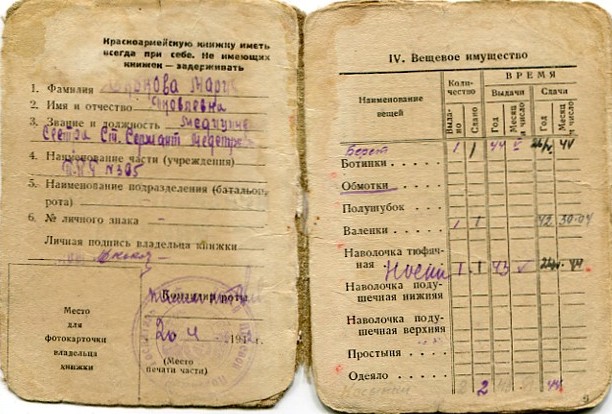 Красноармейскую книжку иметь
всегда при себе. Не имеющих
книжек — задерживать
1. Фамилия Мария
2. Имя и отчество Яковлевна
3. Звание и должность
Сестра Ст. Сержант
4. Наименование части (учреждения)
№ 305
5. Наименование подразделения (батальон,
рота)
6. № личного знака —
Личная подпись владельца книжки
Место
для
фотокарточки
владельца
книжки
Командир роты
20 4 194 г.
(Место
печати части)
IV. Вещевое имущество
Наименование
вещей
Коли-
чество
ВРЕМЯ
Выдачи
Сдачи
Выда-
но
Сдано
Год
Месяц
и число
Год
Месяц
и число
Берет 1 1 44 44
Ботинки
Обмотки
Полушубок
Валенки 1 1 42 30.04
Наволочка тюфяч-
ная
1 1 43 44
Наволочка поду-
шечная нижняя
Наволочка поду-
шечная верхняя
Простыня
Одеяло
2 44
9